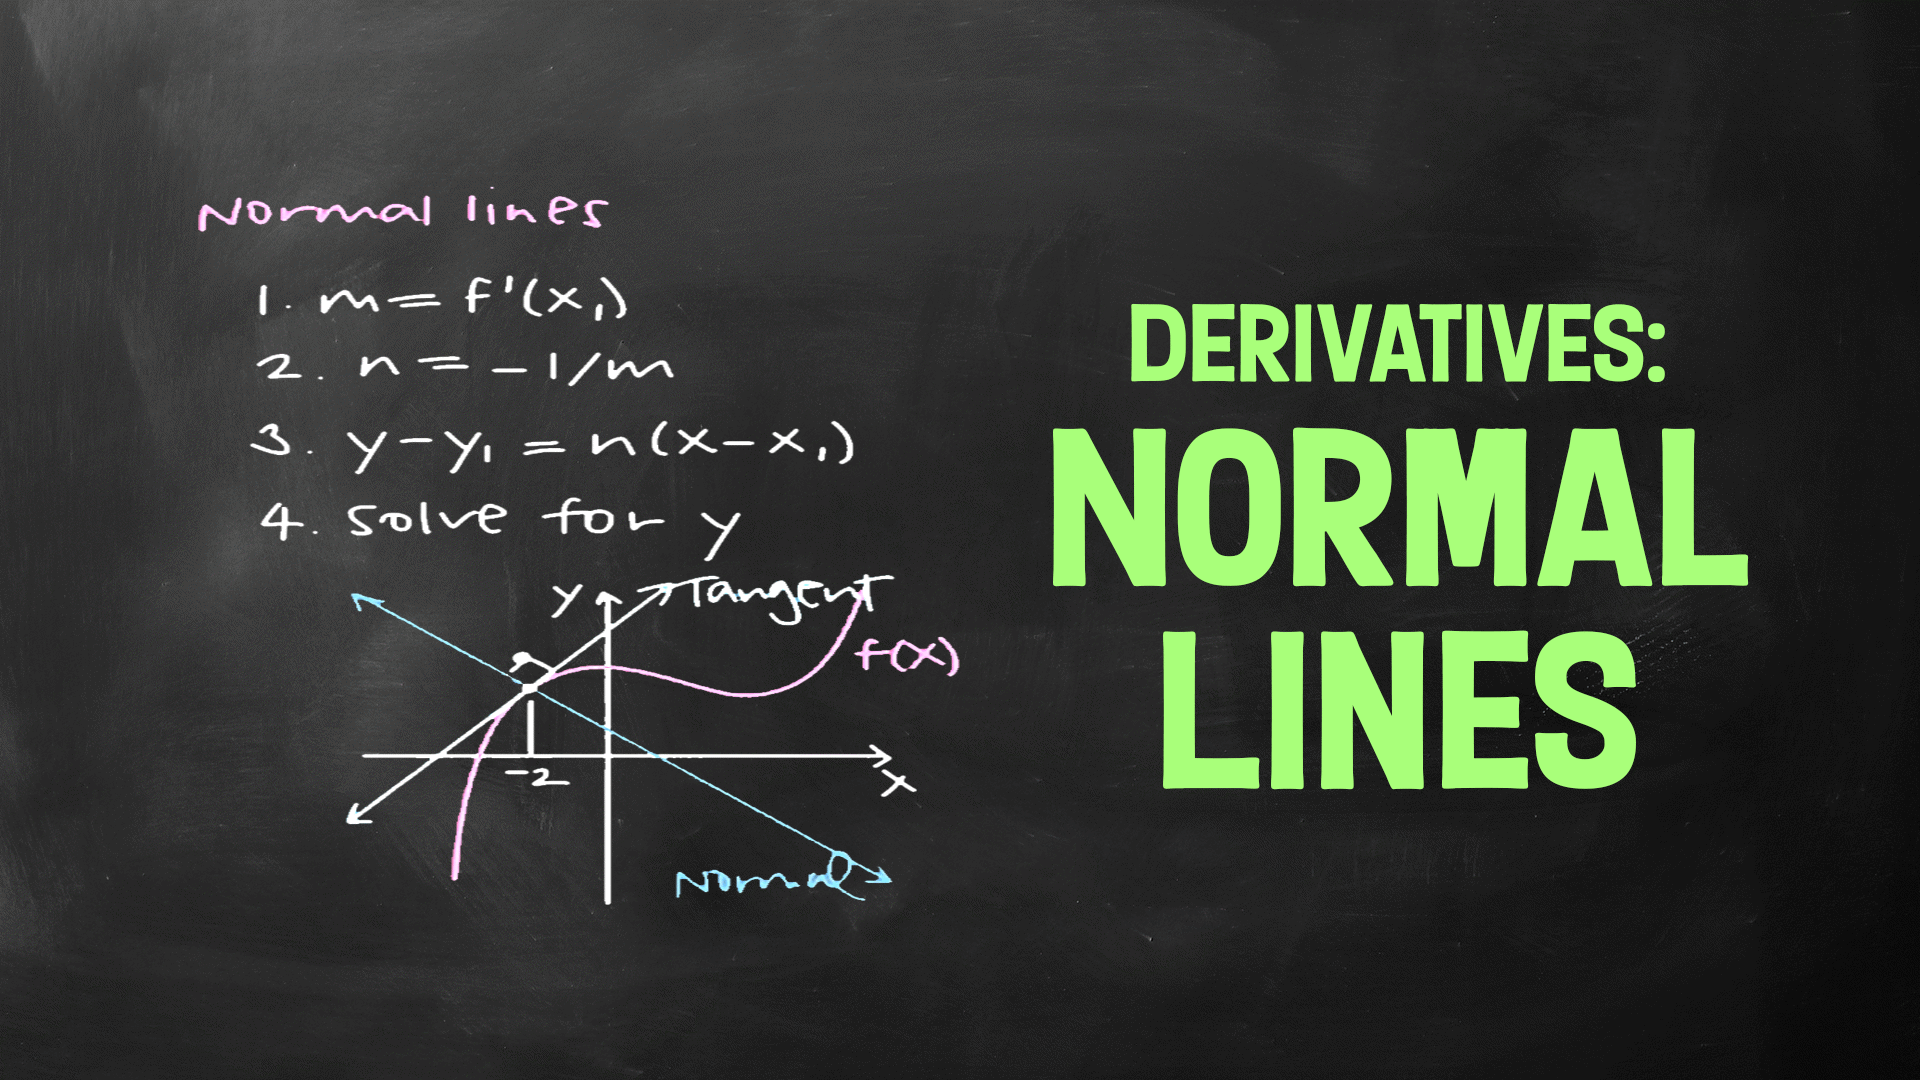 Normal lines
1. m = f'(x₁)
2. n = -1/m
3. y-y₁ = n(x-x₁)
4. solve for y
y
Tangent
f(x)
-2
x
Normal
DERIVATIVES:
NORMAL
LINES